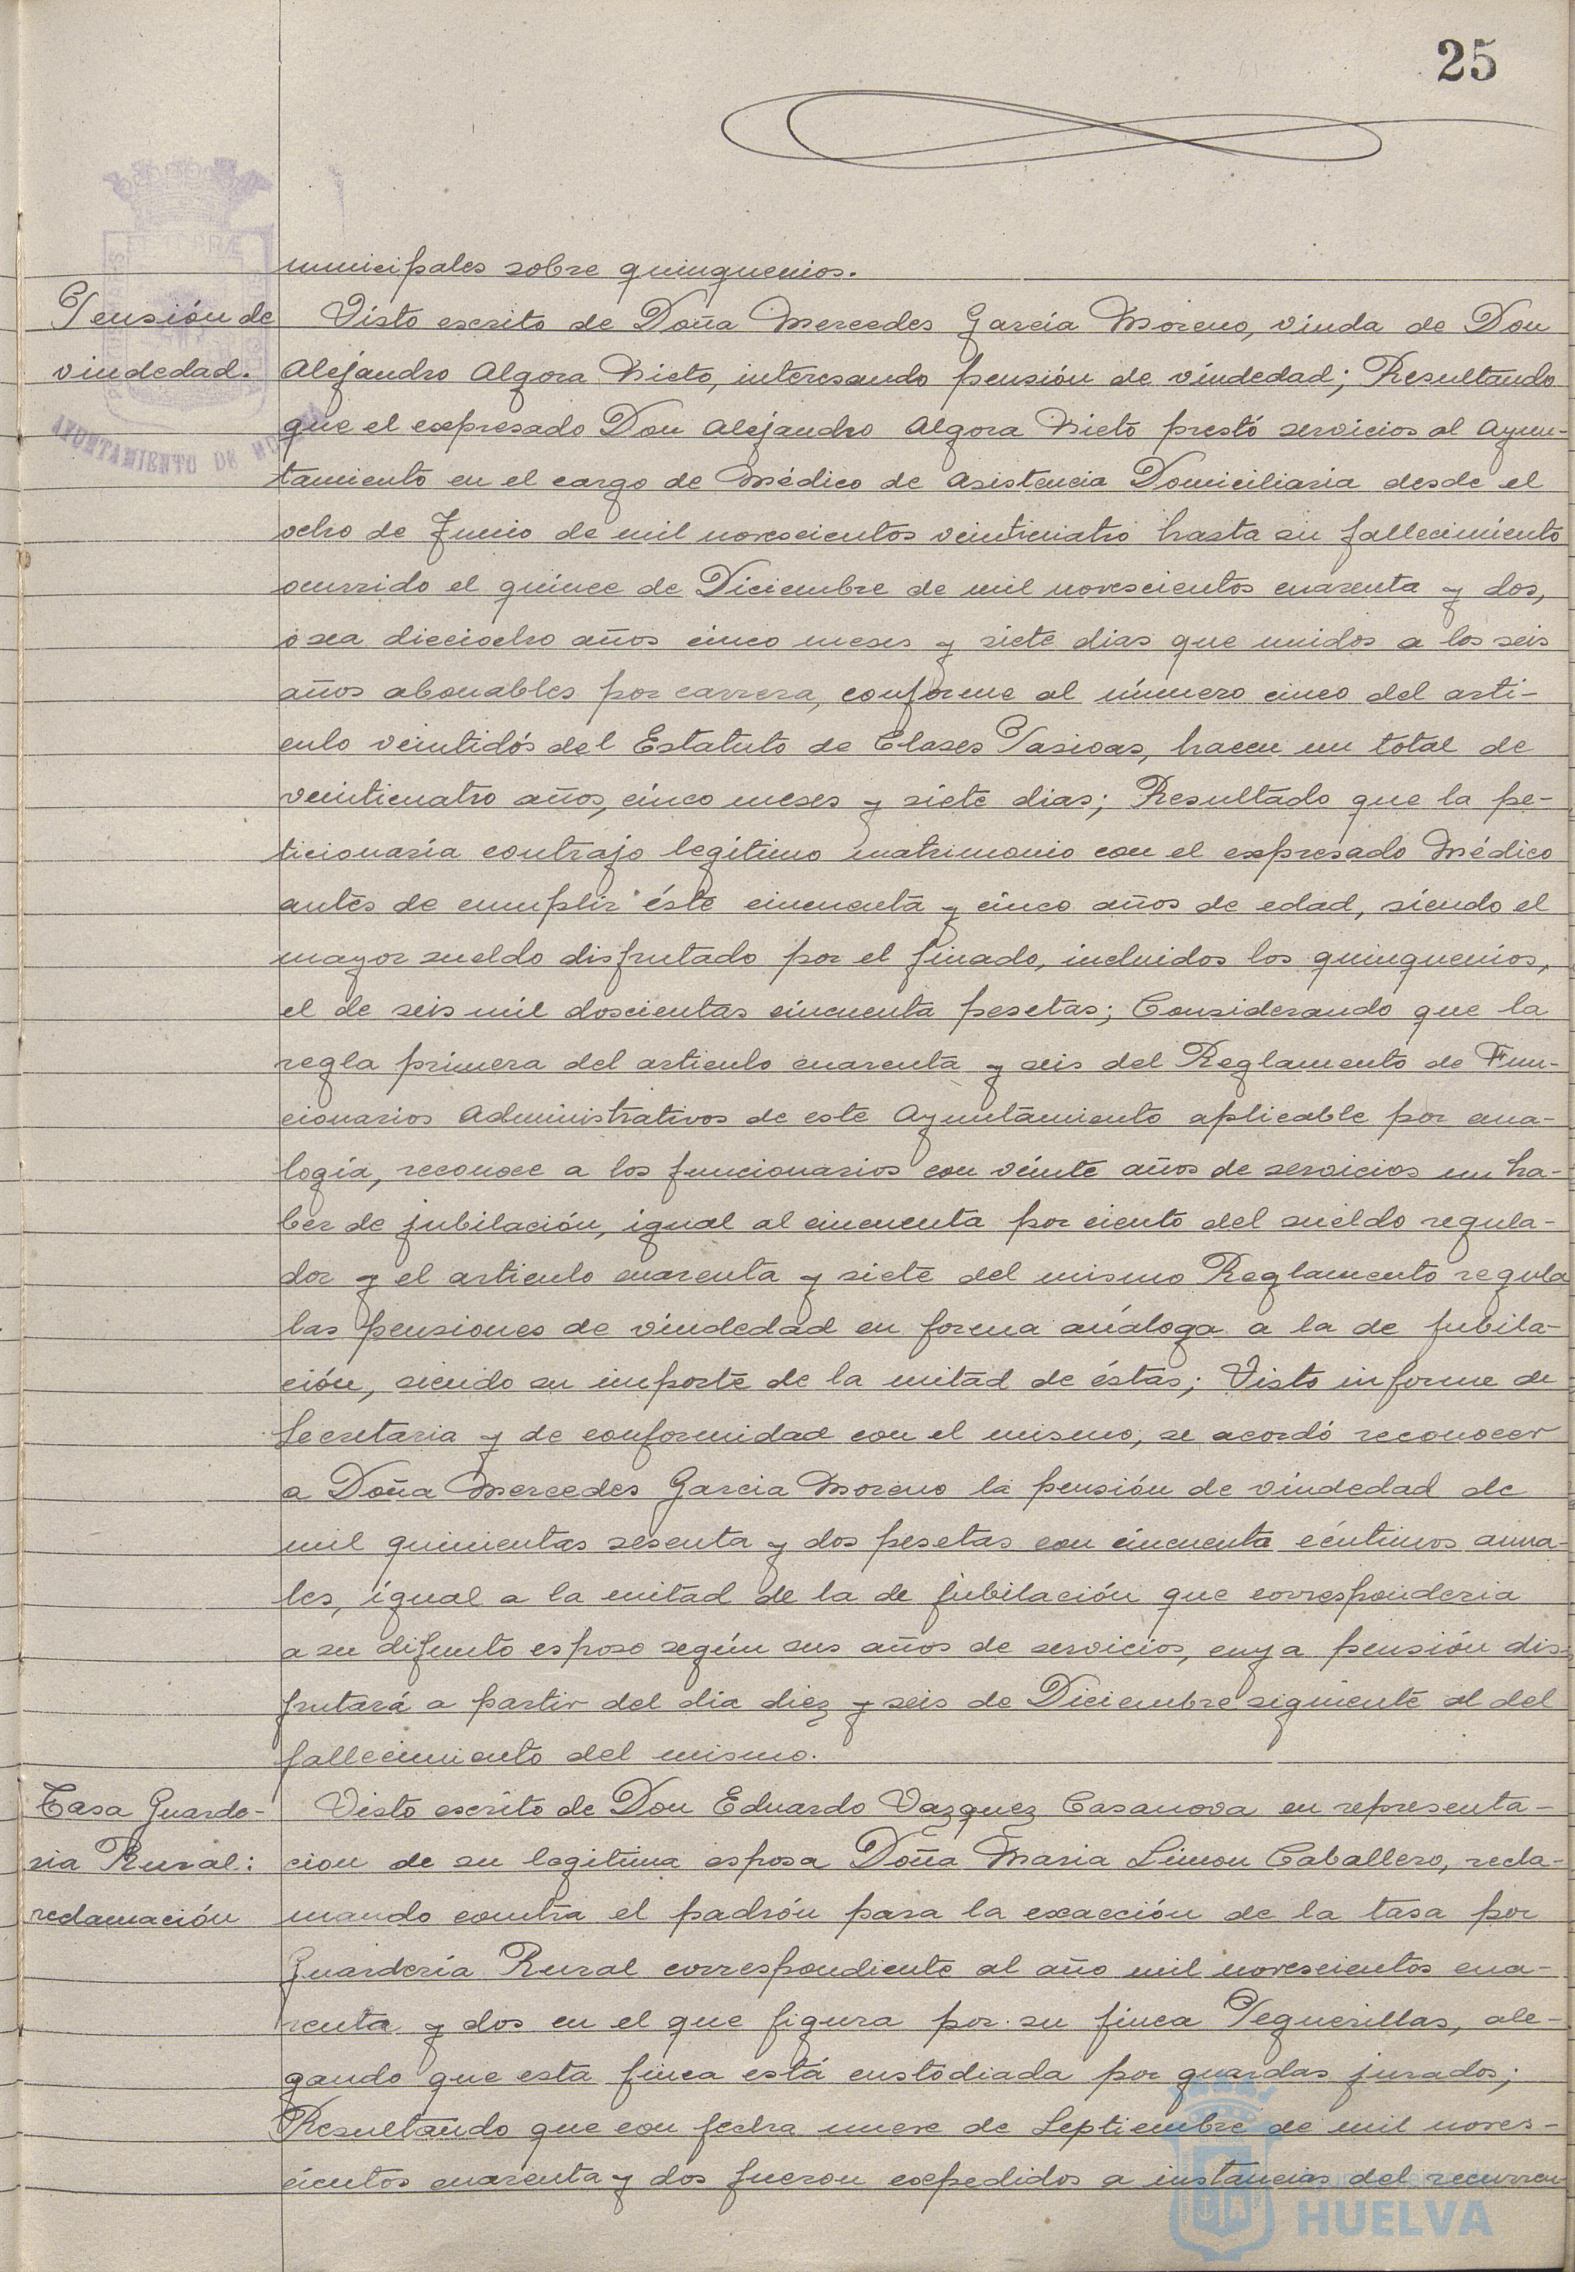 25
municipales sobre quinquenios.
Pensión de
viudedad.
Visto escrito de Doña Mercedes García Moreno, viuda de Don
Alejandro Algora Nieto, interesando pensión de viudedad; Resultando
que el expresado Don Alejandro Algora Nieto prestó servicios al Ayun-
tamiento en el cargo de Médico de Asistencia Domiciliaria desde el
ocho de Junio de mil novescientos veinticuatro hasta su fallecimiento
ocurrido el quince de Diciembre de mil novescientos cuarenta y dos,
o sea dieciocho años cinco meses y siete dias que unidos a los seis
años abonables por carrera, conforme al número cinco del arti-
culo veintidós del Estatuto de Clases Pasivas, hacen un total de
veinticuatro años, cinco meses y siete dias; Resultado que la pe-
ticionaria contrajo legítimo matrimonio con el expresado Médico
antes de cumplir éste cincuenta y cinco años de edad, siendo el
mayor sueldo disfrutado por el finado, incluidos los quinquenios,
el de seis mil doscientas cincuenta pesetas; Considerando que la
regla primera del articulo cuarenta y seis del Reglamento de Fun-
cionarios Administrativos de este Ayuntamiento aplicable por ana-
logía, reconoce a los funcionarios con veinte años de servicios un ha-
ber de jubilación, igual al cincuenta por ciento del sueldo regula-
dor y el articulo cuarenta y siete del mismo Reglamento regula
las pensiones de viudedad en forma análoga a la de jubila-
ción, siendo su importe de la mitad de éstas; Visto informe de
Secretaria y de conformidad con el mismo, se acordó reconocer
a Doña Mercedes Garcia Moreno la pensión de viudedad de
mil quinientas sesenta y dos pesetas con cincuenta céntimos anua-
les, igual a la mitad de la de jubilación que corresponderia
a su difunto esposo según sus años de servicios, cuya pensión dis-
frutará a partir del dia diez y seis de Diciembre siguiente al del
fallecimiento del mismo.
Tasa Guarde-
ria Rural:
reclamación
Visto escrito de Don Eduardo Vazquez Casanova en representa-
cion de su legitima esposa Doña Maria Limon Caballero, recla-
mando contra el padrón para la exacción de la tasa por
Guardería Rural correspondiente al año mil novescientos cua-
renta y dos en el que figura por su finca Peguerillas, ale-
gando que esta finca está custodiada por guardas jurados;
Resultando que con fecha nueve de Septiembre de mil noves-
cientos cuarenta y dos fueron expedidos a instancias del recurren-
AYUNTAMIENTO DE HUELVA
HUELVA